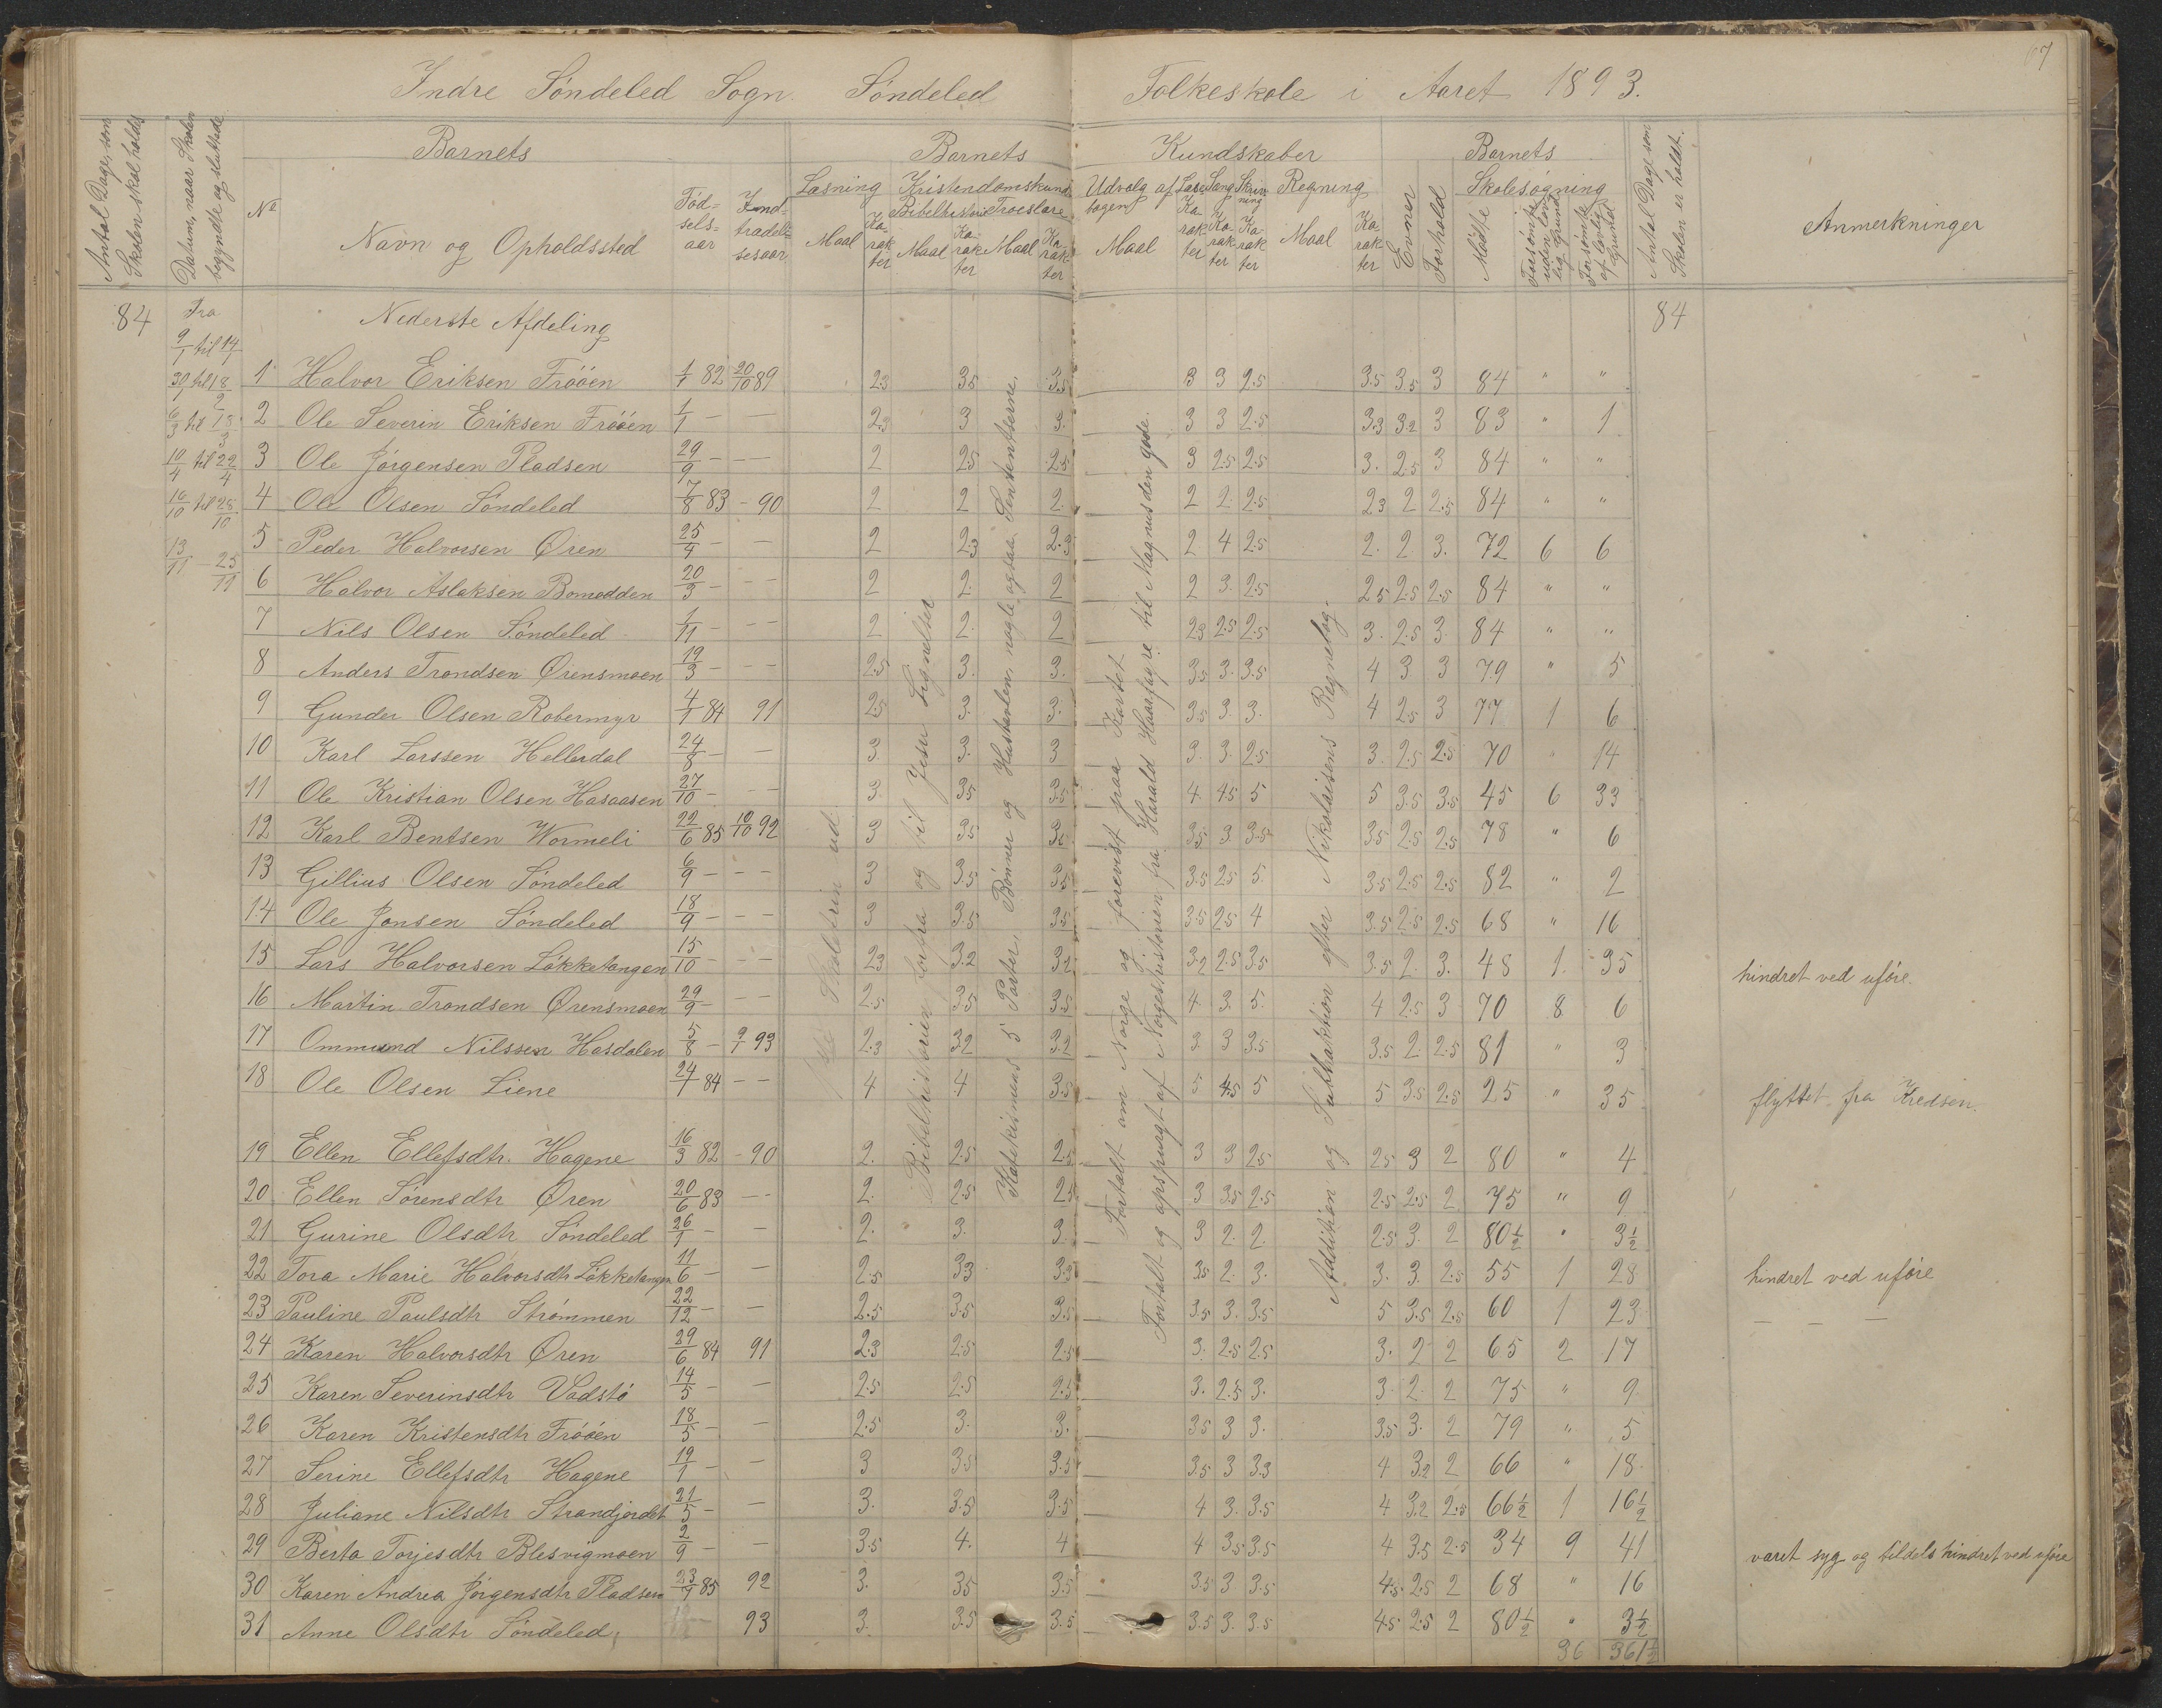 67
Indre Söndeled Sogn. Söndeled Folkeskole i Aaret 1893.
Antal Dage, som Skolen skal holdes
Datum, naar Skolen begyndte og sluttede
Barnets
Barnets Kundskaber
Barnets
Antal Dage som Skolen er holdt.
Anmerkninger
No
Navn og Opholdssted
Födselsaar
Indtrædelsesaar
Læsning Kristendomskund Udvalg af Læsebogen Sang Skrivning Regning Evner Forhold Skolesögning
Bibelhistorie Troeslære
Maal Karakter Maal Karakter Maal Karakter Maal Karakter Karakter Karakter Maal Karakter Mödte Forsömte uden lovlig Grund Forsömte af lovlig Grund
84 Fra Nederste Afdeling 84
9/1 til 14/1
30/1 til 18/2
6/3 til 18/3
10/4 til 22/4
16/10 til 28/10
13/11 - 25/11
1 Halvor Eriksen Fröóen 1/1 82 20/10 89 2.3 3.5 3.5 3 3 2.5 3.5 3.5 3 84 " "
2 Ole Severin Eriksen Fröóen 1/1 - - 2.3 3 3. 3 3 2.5 3.3 3.2 3 83 " 1
3 Ole Jörgensen Pladsen 29/9 - - - 2 2.5 2.5 3 2.5 2.5 3. 2.5 3 84 " "
4 Ole Olsen Söndeled 7/8 83 - 90 2 2 2. 2 2. 2.5 2.3 2 2.5 84 " "
5 Peder Halvorsen Øren 25/4 - - 2 2.3 2.3 2 4 2.5 2. 2. 3. 72 6 6
6 Halvor Aslaksen Bomodden 20/3 - - - 2 2. 2 2 3. 2.5 2.5 2.5 2.5 84 " "
7 Nils Olsen Söndeled 1/11 - - - 2 2. 2 2.3 2.5 2.5 3. 2.5 3. 84 " "
8 Anders Trondsen Ørensmoen 19/3 - - - 2.5 3. 3. 3.5 3. 3.5 4 3 3 79 " 5
9 Gunder Olsen Robermyr 4/7 84 91 2.5 3. 3. 3.5 3. 3. 4 2.5 3 77 1 6
10 Karl Larssen Hellerdal 24/8 - - 3. 3. 3 3. 3. 2.5 3. 2.5 2.5 70 " 14
11 Ole Kristian Olsen Hasaasen 27/10 - - - 3. 3.5 3.5 4. 4.5 5 5 3.5 3.5 45 6 33
12 Karl Bentsen Wormeli 22/6 85 10/10 92 3 3.5 3.5 3.5 3 3.5 3.5 2.5 2.5 78 " 6
13 Gillius Olsen Söndeled 6/9 - - - 3 3.5 3.5 3.5 2.5 5. 3.5 2.5 2.5 82 " 2
14 Ole Jonsen Söndeled 18/9 - - - 3 3.5 3.5 3.5 2.5 4 3.5 2.5 2.5 68 " 16
15 Lars Halvorsen Lökketangen 15/10 - - - 2.3 3.2 3.2 3.2 2.5 3.5 3.5 2. 3. 48 1. 35 hindret ved uföre.
16 Martin Trondsen Ørensmoen 29/9 - - - 2.5 3.5 3.5 4. 3. 5. 4 2.5 3 70 8 6
17 Ommund Nilssen Hasdalen 5/8 - 9/1 93 2.3 3.2 3.2 3. 3 3.5 3.5 2. 2.5 81 " 3
18 Ole Olsen Liene 24/7 84 - - 4 4 3.5 5 4.5 5 5 3.5 2.5 25 " 35 flyttet fra Kredsen.
19 Ellen Ellefsdtr. Hagene 16/3 82 - 90 2. 2.5 2.5 3 3 2.5 2.5 3 2 80 " 4
20 Ellen Sörensdtr Øren 20/6 83 - - 2. 2.5 2.5 3 3.5 2.5 2.5 2.5 2 75 " 9
21 Gurine Olsdtr Söndeled 26/1 - - 2. 3. 3. 3 2. 2. 2.5 3. 2 80½ " 3½
22 Tora Marie Halvorsdtr Lökketangen 11/6 - - 2.5 3.3 3.3 3.5 2. 3. 3. 3. 2.5 55 1 28 hindret ved uföre
23 Pauline Paulsdtr Strömmen 22/12 - - 2.5 3.5 3.5 3.5 3. 3.5 5 3.5 2.5 60 1 23 - - -
24 Karen Halvorsdtr Øren 29/6 84 91 2.3 2.5 2.5 3. 2.5 2.5 3. 2 2 65 2 17
25 Karen Severinsdtr Vadstö 14/5 - - 2.5 2.5 2.5 3. 2.5 3. 3. 2. 2 75 " 9
26 Karen Kristensdtr Fröóen 18/5 - - 2.5 3. 3. 3.5 3 3. 3.5 3. 2 79 " 5
27 Serine Ellefsdtr Hagene 19/1 - - 3 3.5 3.5 3.5 3 3.3 4 3.2 2 66 " 18
28 Juliane Nilsdtr Strandjordet 21/5 - - 3. 3.5 3.5 4 3. 3.5 4 3.2 2.5 66½ 1 16½
29 Berta Torjesdtr Blesvigmoen 2/9 - - 3.5 4. 4 4 3.5 3.5 4 3.5 2.5 34 9 41 været syg og tildels hindret ved uföre
30 Karen Andrea Jörgensdtr Pladsen 23/7 85 92 3. 3.5 3.5 3.5 3 3.5 4.5 2.5 2 68 " 16
31 Anne Olsdtr Söndeled 93 3. 3.5 3.5 3.5 3. 3.5 4.5 2.5 2 80½ " 3½
36 361½
Skoletrin ud
Bibelhistorien forfra og til Jesu Lignelser
Katekismus 5 Parter, Bönner og Hustavlen, nogle ogsaa Sententserne.
Fortalt om Norge og forevist paa Kartet
Fortalt og opspurgt af Norgeshistorien fra Harald Haarfagre til Magnus den gode.
Addition og Subtraktion efter Nikolaisens Regnebog.